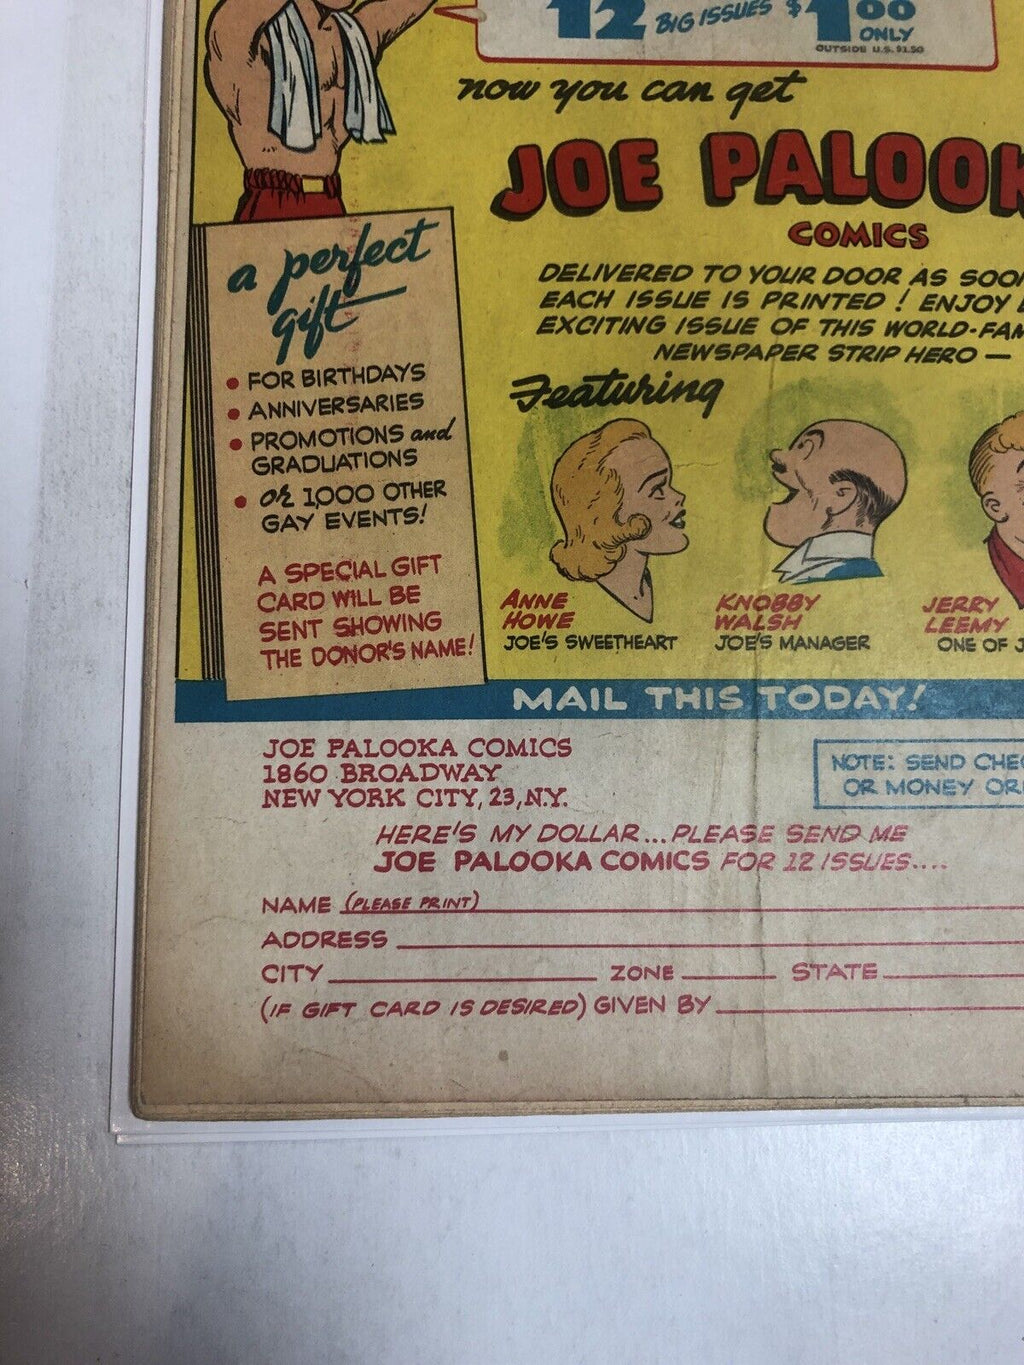 12 BIG ISSUES $1.00
ONLY
OUTSIDE U.S. $1.50
now you can get
JOE PALOOK
COMICS
DELIVERED TO YOUR DOOR AS SOO
EACH ISSUE IS PRINTED! ENJOY
EXCITING ISSUE OF THIS WORLD-FAM
NEWSPAPER STRIP HERO —
Featuring
ANNE
HOWE
JOE'S SWEETHEART
KNOBBY
WALSH
JOE'S MANAGER
JERRY
LEEMY
ONE OF J
a perfect
gift
• FOR BIRTHDAYS
• ANNIVERSARIES
• PROMOTIONS and
GRADUATIONS
• or 1,000 OTHER
GAY EVENTS!
A SPECIAL GIFT
CARD WILL BE
SENT SHOWING
THE DONOR'S NAME!
MAIL THIS TODAY!
JOE PALOOKA COMICS
1860 BROADWAY
NEW YORK CITY, 23, N.Y.
NOTE: SEND CHE
OR MONEY OR
HERE'S MY DOLLAR...PLEASE SEND ME
JOE PALOOKA COMICS FOR 12 ISSUES....
NAME (PLEASE PRINT)
ADDRESS
CITY ZONE STATE
(IF GIFT CARD IS DESIRED) GIVEN BY